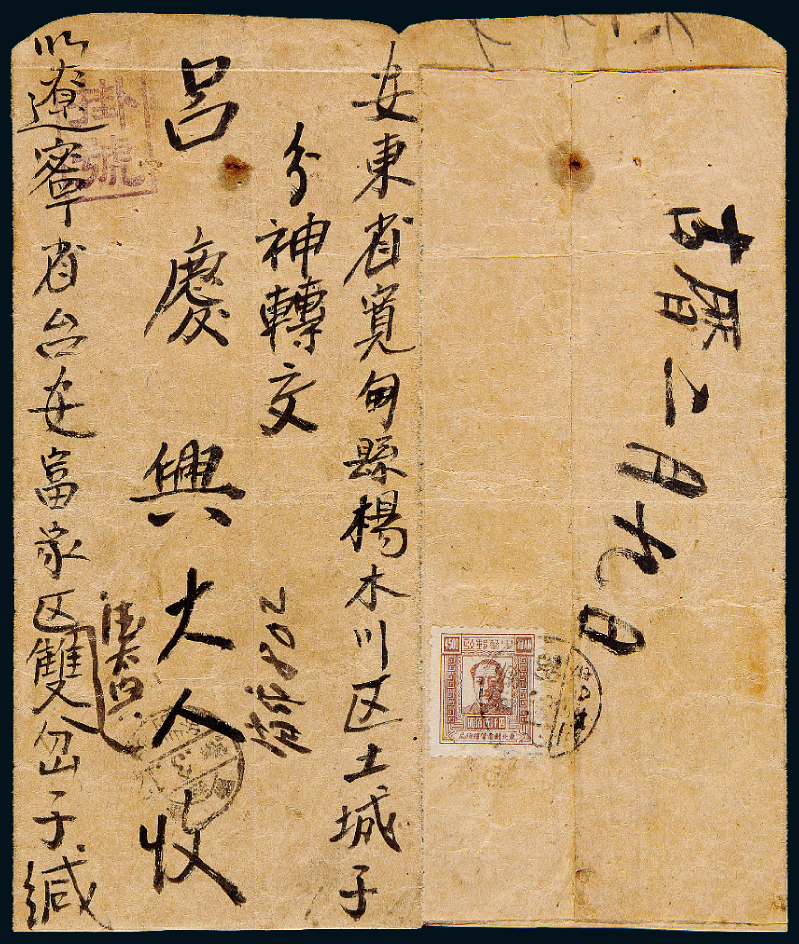 古曆二月九日
安東省寬甸縣楊木川区土城子
分神轉交
呂慶興大人收
遼寧省台安富家区雙岔子緘
掛號
802